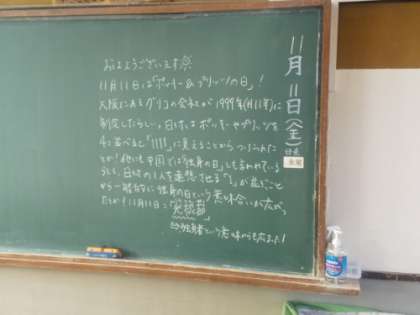 おはようございます
11月11日は「ポッキー&プリッツの日」!
大阪にあるグリコの会社が1999年(H11年)に
制定したらしい。日付は ポッキーやプリッツを
4つ並べると「1111」に見えることからつけられた
とか!他にも中国では「独身の日」とも言われている
らしく、日付の1人を連想させる「1」が並ぶこと
から一般的に独身の日という意味合いが広がっ
たとか!11月11日=「光棍節」
独身者という意味からも
11月11日(金)
日直